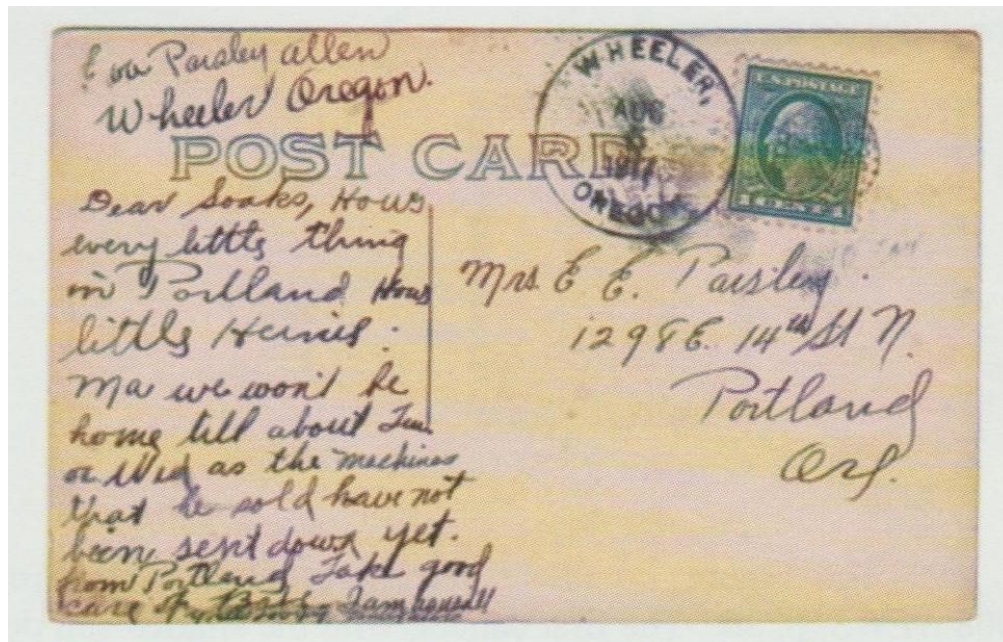 Eva Paisley Allen
Wheeler Oregon.
POST CARD
WHEELER,
AUG
1917
OREGON
U.S. POSTAGE
1 CENT 1
Dear Soaks, Hows
every little thing
in Portland Hows
little Heinie.
Ma we won't be
home till about Tues
or Wed as the machines
that he sold have not
been sent down yet.
from Portland, Take good
care of
Mrs. E. E. Paisley.
1298 E. 14th St N.
Portland
Ore.